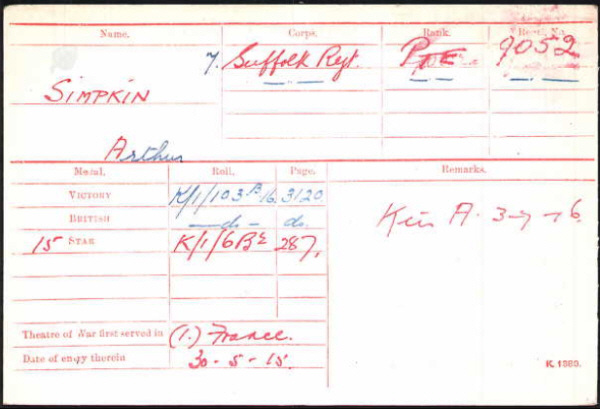 Name. Corps. Rank. Regtl. No.
7. Suffolk Regt. Pte 9052
SIMPKIN
Arthur
Medal. Roll. Page. Remarks.
VICTORY K/1/103 B 16 3120
BRITISH -do- do.
15 STAR K/1/6 B2 287.
Kin A. 3-7-16
Theatre of War first served in (1.) France.
Date of entry therein 30-5-15.
K. 1380.